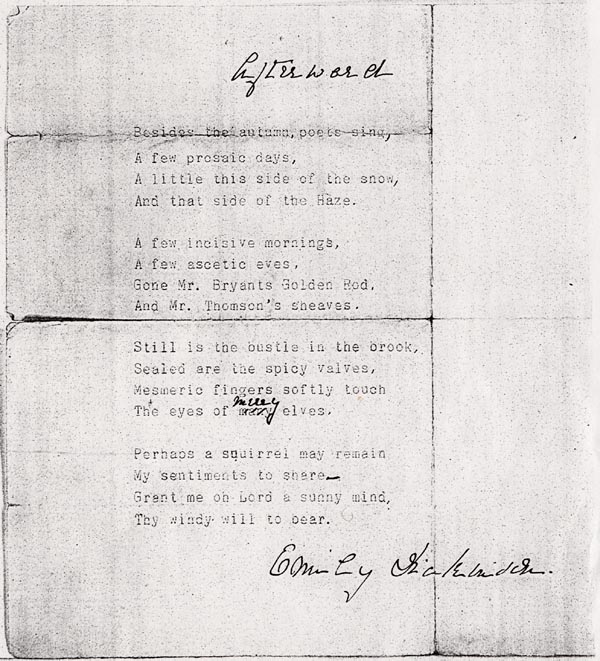 Afterward
Besides the autumn, poets sing,
A few prosaic days,
A little this side of the snow,
And that side of the Haze.
A few incisive mornings,
A few ascetic eves,
Gone Mr. Bryants Golden Rod,
And Mr. Thomson's sheaves.
Still is the bustle in the brook,
Sealed are the spicy valves,
Mesmeric fingers softly touch
The eyes of elves.
Perhaps a squirrel may remain
My sentiments to share—
Grant me oh Lord a sunny mind,
Thy windy will to bear.
Emily Dickinson.